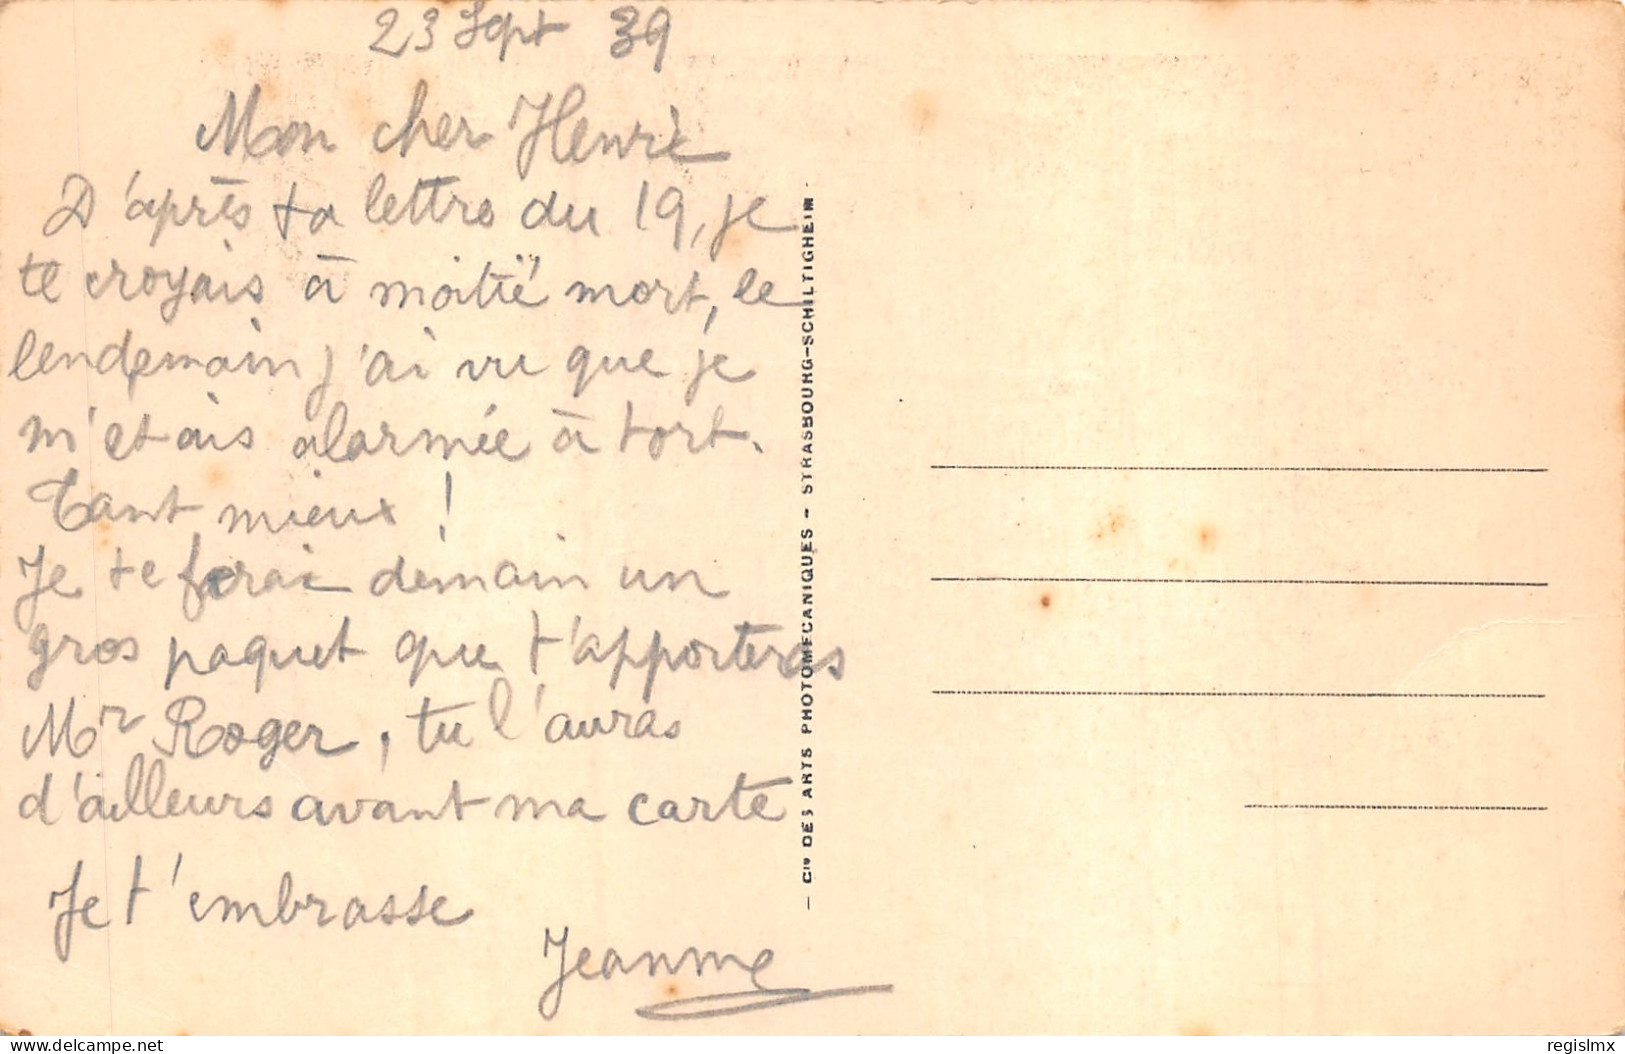 23 Sept 39
Mon cher Henri
D'après ta lettre du 19, je
te croyais à moitié mort, le
lendemain j'ai vu que je
m'etais alarmée à tort.
Tant mieux !
Je te ferai demain un
gros paquet que t'apporteras
Mr Roger, tu l'auras
d'ailleurs avant ma carte
Je t'embrasse
Jeanne
- Cie DES ARTS PHOTOMECANIQUES - STRASBOURG-SCHILTIGHEIM
delcampe.net
regislmx